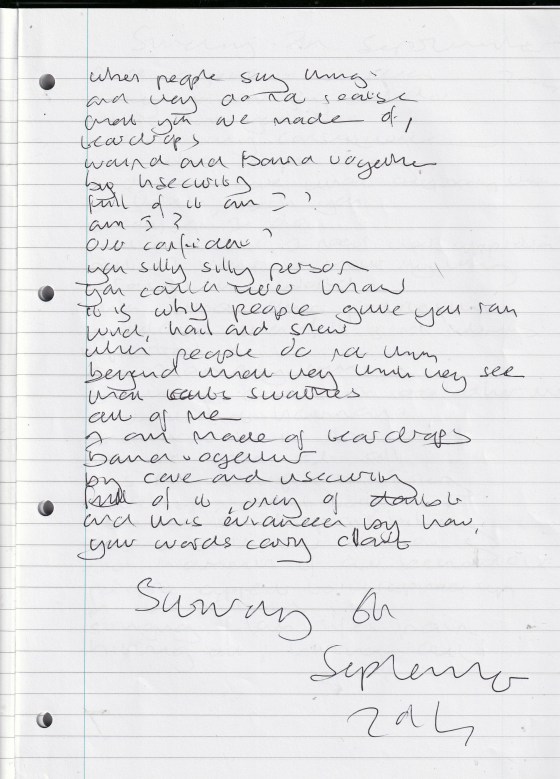 when people say things
and they do not realise
what you are made of,
teardrops
wound and bound together
by insecurity
full of it am I?
am I?
over confident?
you silly silly person
you could never know
it is why people gave you rain
wind, hail and snow
when people do not think
beyond what they think they see
that swathes
all of me
I am made of teardrops
bound together
by care and insecurity
full of it, only of doubt
and this by how,
your words carry clout
Saturday 6th
September
2014